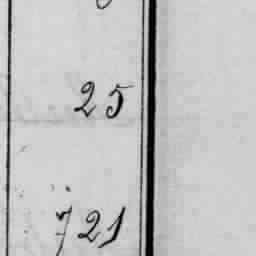 25
721